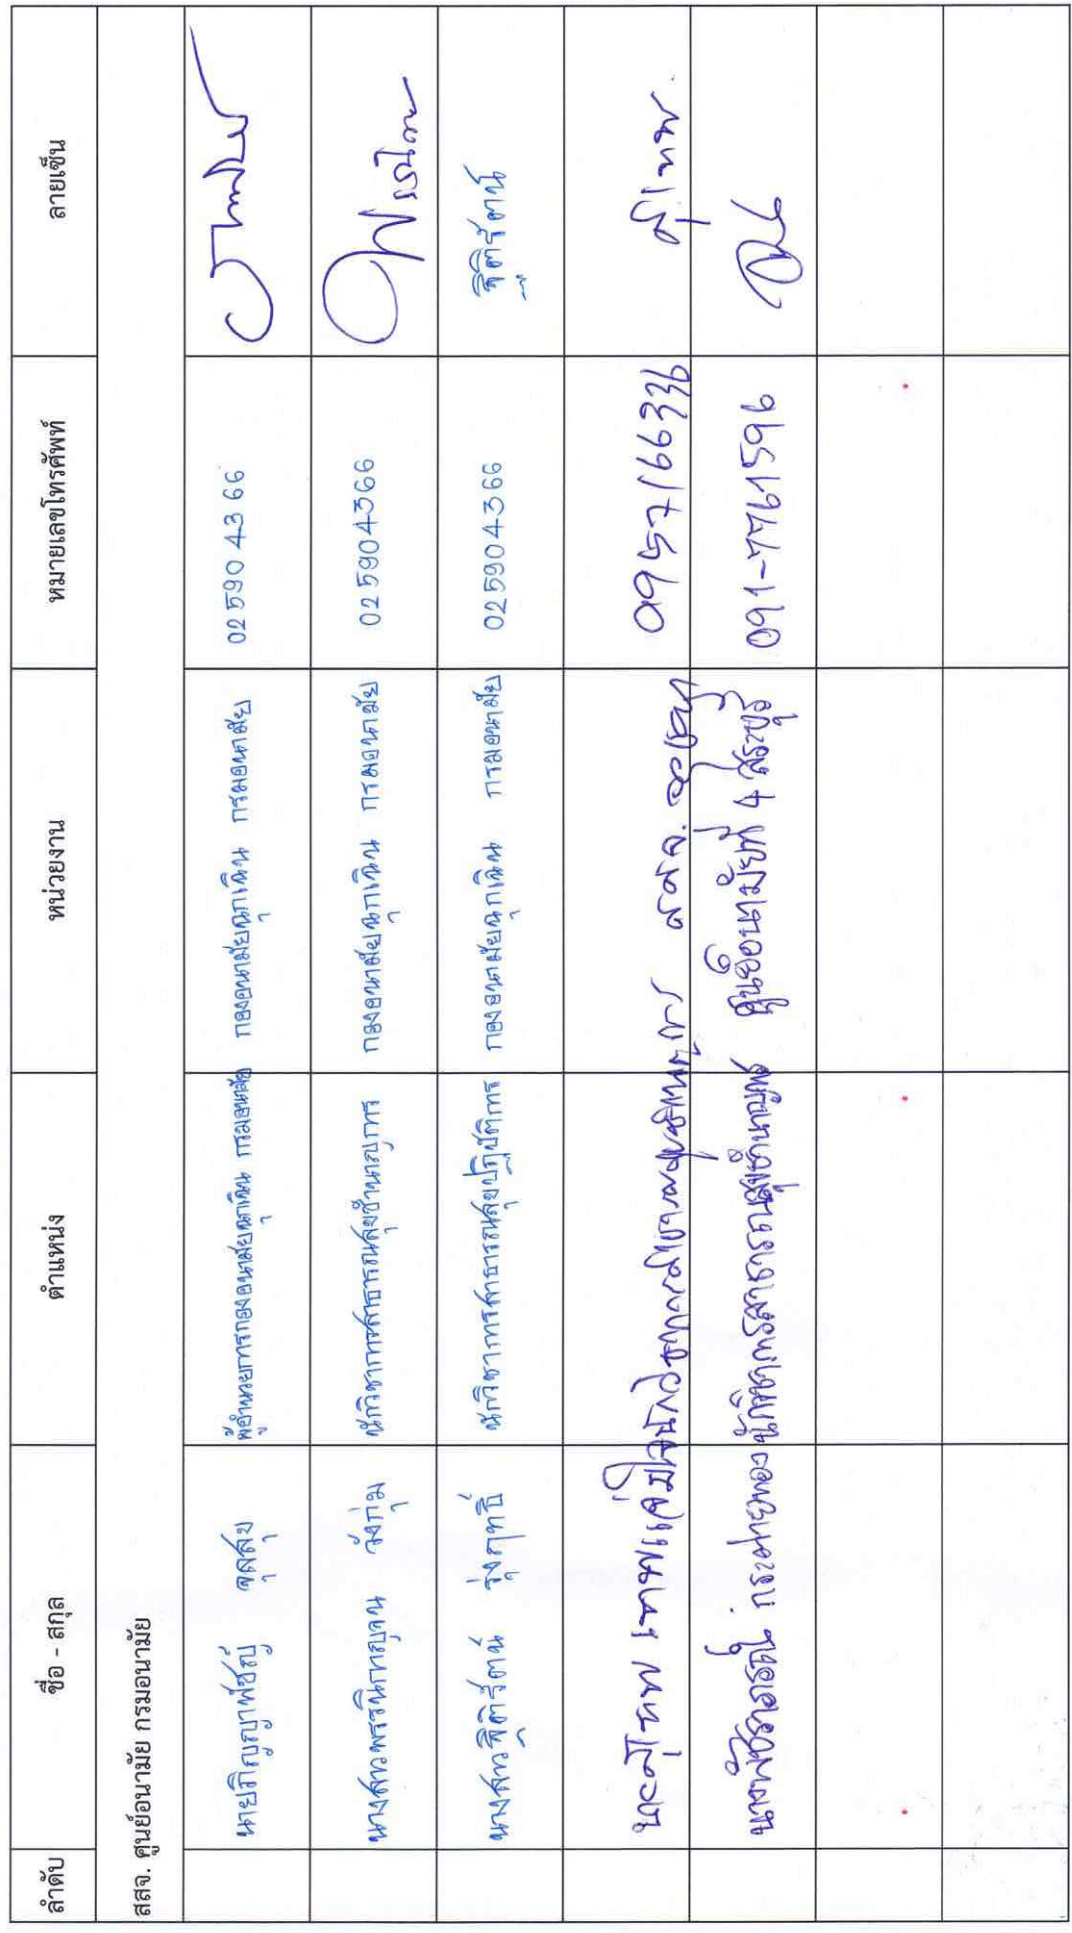 ลำดับ ชื่อ - สกุล ตำแหน่ง หน่วยงาน หมายเลขโทรศัพท์ ลายเซ็น
สสจ. ศูนย์อนามัย กรมอนามัย
นายภิญญาพัชญ์ จุลสุข ผู้อำนวยการกองอนามัยฉุกเฉิน กรมอนามัย กองอนามัยฉุกเฉิน กรมอนามัย 025904366
นางสาวพรรนิกาญจน วังกุ่ม นักวิชาการสาธารณสุขชำนาญการ กองอนามัยฉุกเฉิน กรมอนามัย 025904366
นางสาวฐิติรัตน์ รุ่งฤทธิ์ นักวิชาการสาธารณสุขปฏิบัติการ กองอนามัยฉุกเฉิน กรมอนามัย 025904366 ฐิติรัตน์
สสจ. 0957166336
กระต่ายทอง นักวิชาการสาธารณสุขชำนาญการ ศูนย์อนามัยที่ 4 สระบุรี 091-7761596